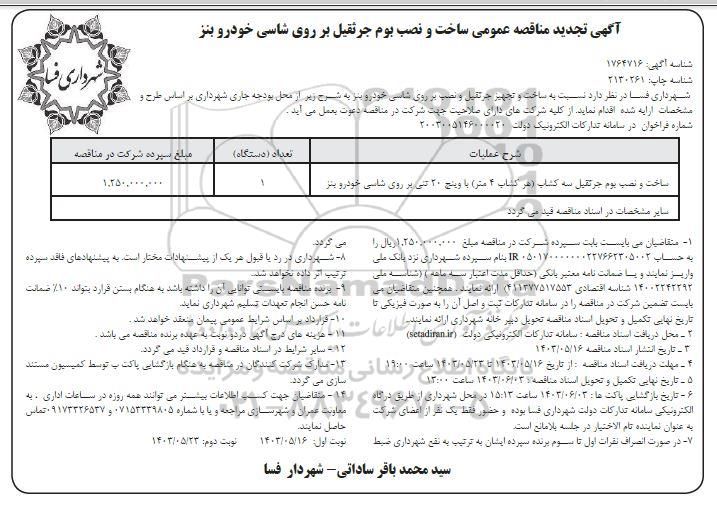 آگهی تجدید مناقصه عمومی ساخت و نصب بوم جرثقیل بر روی شاسی خودرو بنز
شهرداری فسا
شناسه آگهی: ۱۷۶۴۷۱۶
شناسه چاپ: ۲۱۳۰۲۶۱
شهرداری فسا در نظر دارد نسبت به ساخت و تجهیز جرثقیل و نصب بر روی شاسی خودرو بنز به شرح زیر از محل بودجه جاری شهرداری بر اساس طرح و
مشخصات ارایه شده اقدام نماید. از کلیه شرکت های دارای صلاحیت جهت شرکت در مناقصه دعوت بعمل می آید .
شماره فراخوان در سامانه تدارکات الکترونیک دولت ۲۰۰۳۰۰۵۱۴۶۰۰۰۰۲۰
شرح عملیات تعداد (دستگاه) مبلغ سپرده شرکت در مناقصه
ساخت و نصب بوم جرثقیل سه کشاب (هر کشاب ۴ متر) با وینچ ۲۰ تنی بر روی شاسی خودرو بنز ۱ ۱,۲۵۰,۰۰۰,۰۰۰
سایر مشخصات در اسناد مناقصه قید می گردد
۱- متقاضیان می بایست بابت سپرده شرکت در مناقصه مبلغ ۱,۲۵۰,۰۰۰,۰۰۰ریال را
به حساب IR ۰۵۰۱۷۰۰۰۰۰۰۰۲۲۷۶۶۲۳۰۵۰۰۲ بنام سپرده شهرداری نزد بانک ملی
واریز نمایند و یا ضمانت نامه معتبر بانکی (حداقل مدت اعتبار سه ماهه ) (شناسه ملی
۱۴۰۰۲۲۴۲۲۹۲ شناسه اقتصادی ۴۱۱۳۷۷۵۱۷۵۵۳) ارائه نمایند . همچنین متقاضیان می
بایست تضمین شرکت در مناقصه را در سامانه تدارکات ثبت و اصل آن را به صورت فیزیکی تا
تاریخ نهایی تکمیل و تحویل اسناد مناقصه تحویل دبیر خانه شهرداری ارائه نمایند.
۲ ـ محل دریافت اسناد مناقصه : سامانه تدارکات الکترونیکی دولت (setadiran.ir)
۳ ـ تاریخ انتشار اسناد مناقصه ۱۴۰۳/۰۵/۱۶
۴ ـ مهلت دریافت اسناد مناقصه : از تاریخ ۱۴۰۳/۰۵/۱۶ تا ۱۴۰۳/۰۵/۲۳ ساعت ۱۹:۰۰
۵ ـ تاریخ نهایی تکمیل و تحویل اسناد مناقصه : ۱۴۰۳/۰۶/۰۳ ساعت ۱۳:۰۰
۶ - تاریخ بازگشایی پاکت ها : ۱۴۰۳/۰۶/۰۳ ساعت ۱۵:۱۳ در محل شهرداری از طریق درگاه
الکترونیکی سامانه تدارکات دولت شهرداری فسا بوده و حضور فقط یک نفر از اعضای شرکت
به عنوان نماینده تام الاختیار در جلسه بلامانع است.
۷- در صورت انصراف نفرات اول تا سوم برنده سپرده ایشان به ترتیب به نفع شهرداری ضبط
می گردد.
۸- شهرداری در رد یا قبول هر یک از پیشنهادات مختار است. به پیشنهادهای فاقد سپرده
ترتیب اثر داده نخواهد شد.
۹- برنده مناقصه بایستی توانایی آن را داشته باشد به هنگام بستن قرارد بتواند ۱۰٪ ضمانت
نامه حسن انجام تعهدات تسلیم شهرداری نماید.
۱۰-قرارداد بر اساس شرایط عمومی پیمان منعقد خواهد شد .
۱۱ – هزینه های درج آگهی دردو نوبت به عهده برنده مناقصه می باشد .
۱۲ – سایر شرایط در اسناد مناقصه و قرارداد قید می گردد.
۱۳- مدارک شرکت کنندگان در مناقصه به هنگام بازگشایی پاکت ب توسط کمیسیون مستند
سازی می گردد.
۱۴- متقاضیان جهت کسب اطلاعات بیشتر می توانند همه روزه در ساعات اداری ، به
معاونت عمران و شهرسازی مراجعه و یا با شماره ۰۷۱۵۳۳۳۹۸۰۵ و ۰۹۱۷۳۳۲۶۵۳۷تماس
حاصل نمایند.
نوبت اول: ۱۴۰۳/۰۵/۱۶ نوبت دوم: ۱۴۰۳/۰۵/۲۳
سید محمد باقر ساداتی– شهردار فسا